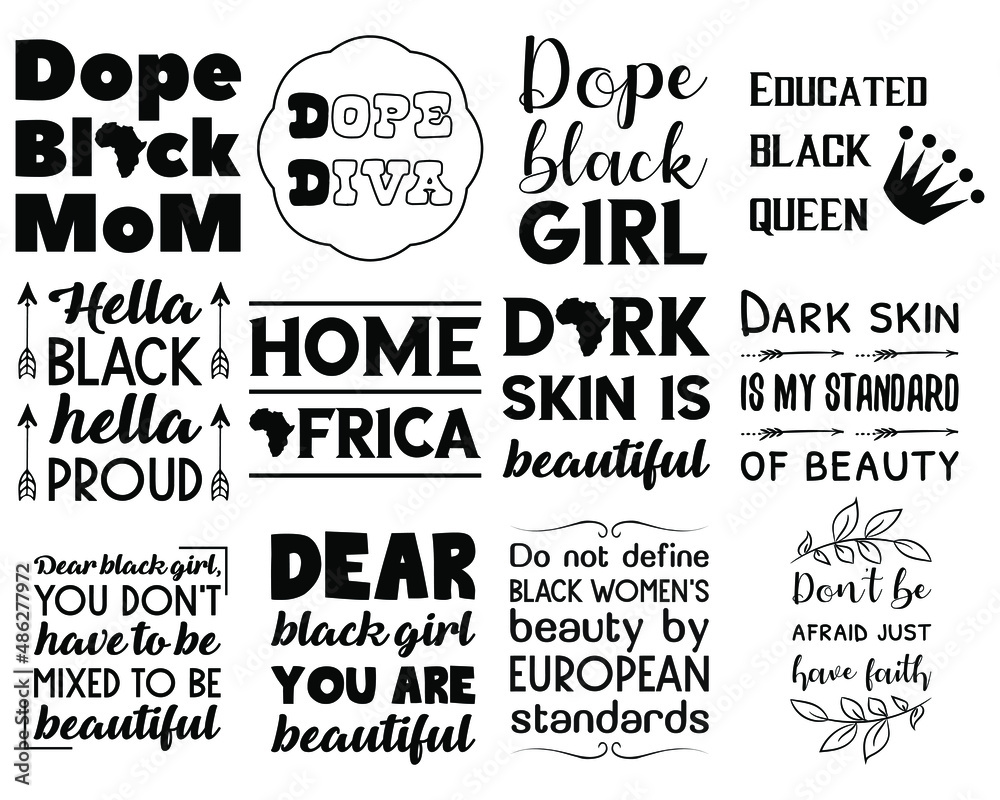 Dope
Black
MoM
DOPE
DIVA
Dope
black
GIRL
EDUCATED
BLACK
QUEEN
Hella
BLACK
hella
PROUD
HOME
AFRICA
DARK
SKIN IS
beautiful
DARK SKIN
IS MY STANDARD
OF BEAUTY
Dear black girl,
YOU DON'T
have to be
MIXED TO BE
beautiful
DEAR
black girl
YOU ARE
beautiful
Do not define
BLACK WOMEN'S
beauty by
EUROPEAN
standards
Don't be
AFRAID JUST
have faith
Adobe Stock | #486277972